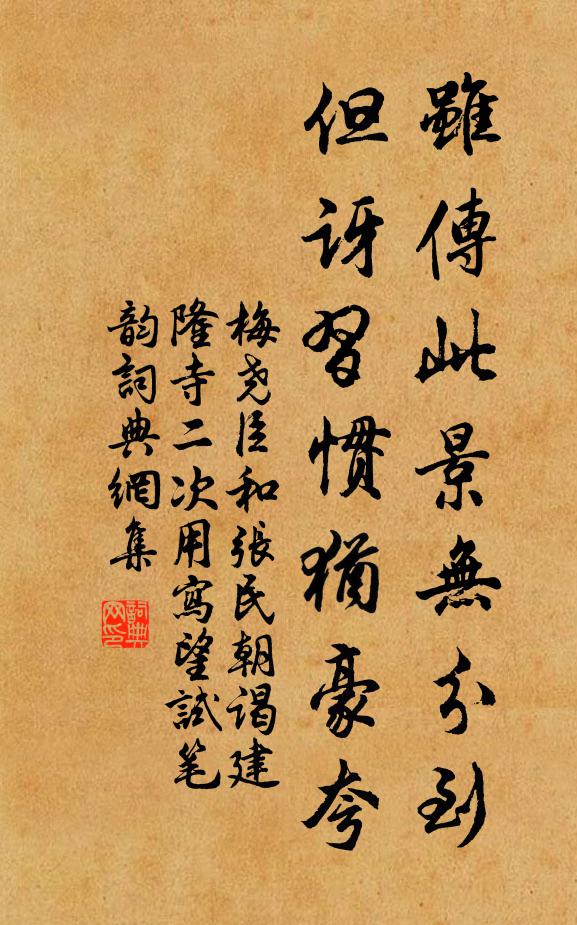 雖傳此景無分到
但訝習慣猶豪夸
梅尧臣和張民朝谒建
隆寺二次用寫望試笔
韵詞典網集
詞典網印